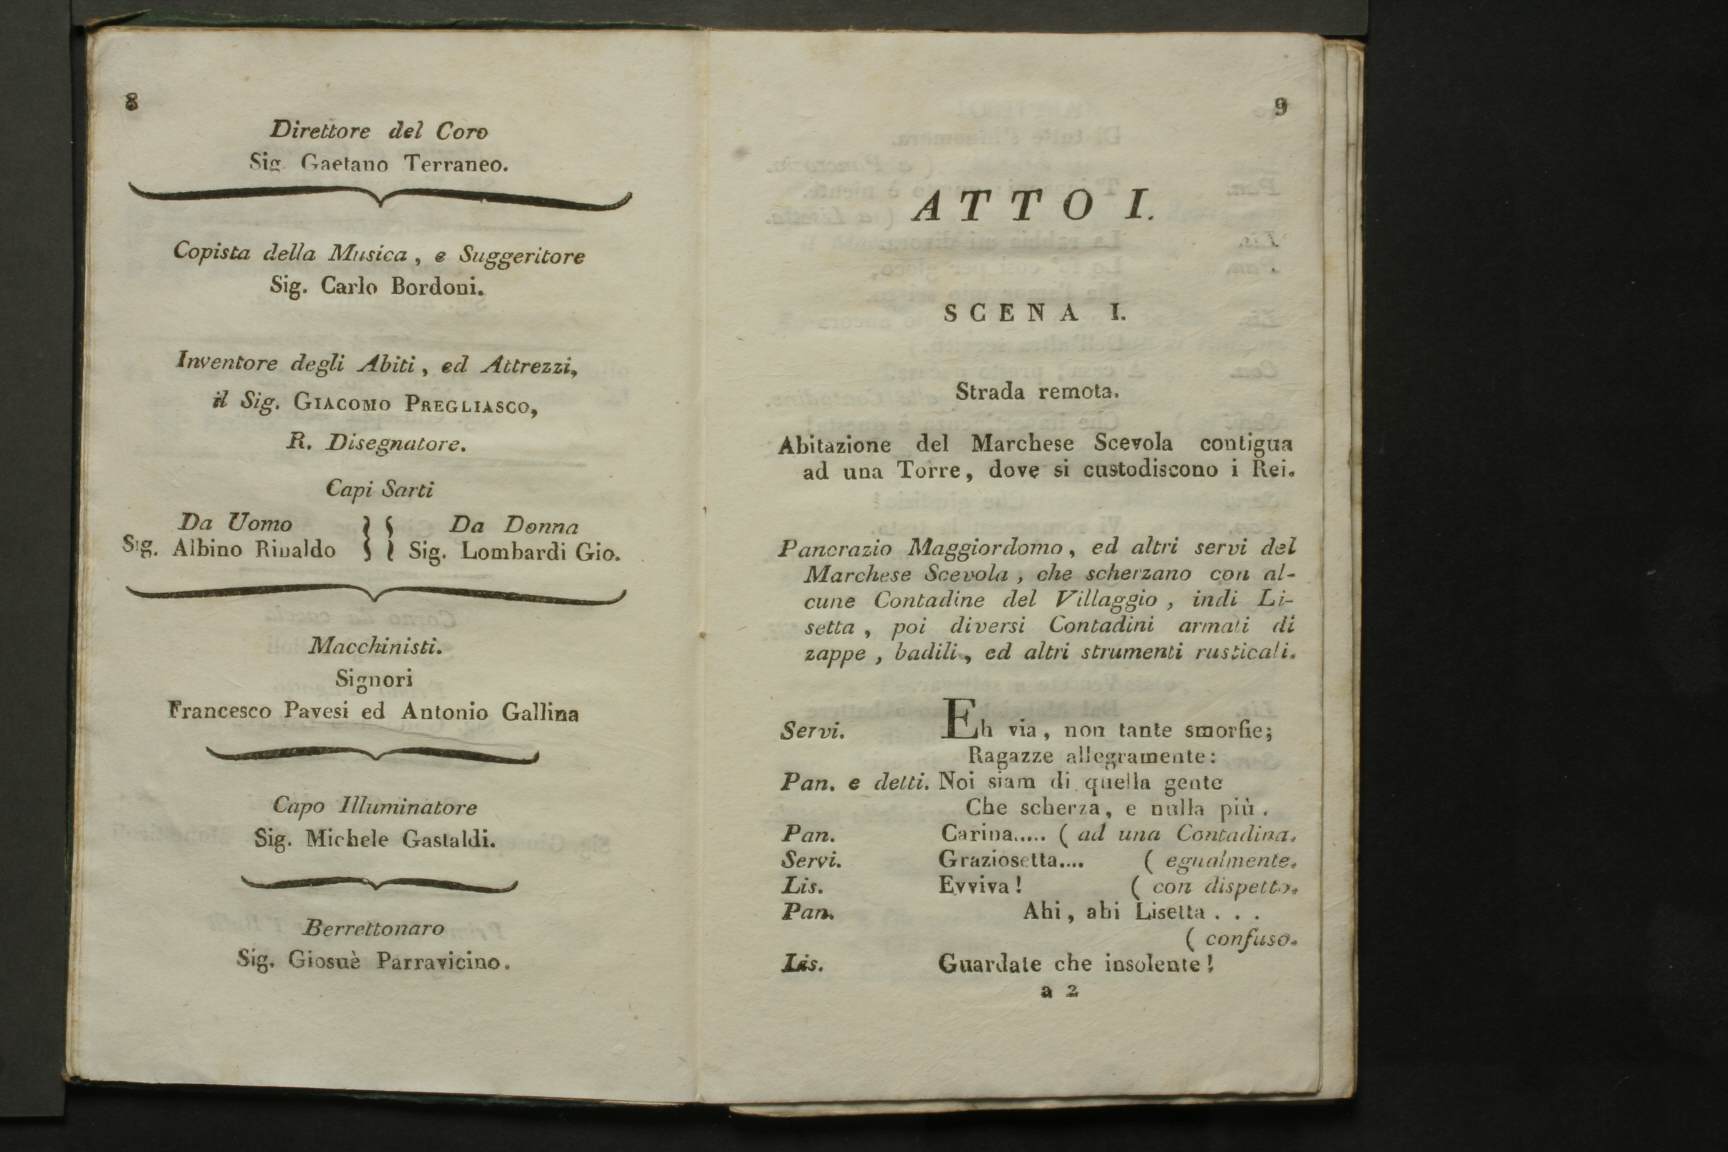 8
Direttore del Coro
Sig. Gaetano Terraneo.
Copista della Musica, e Suggeritore
Sig. Carlo Bordoni.
Inventore degli Abiti, ed Attrezzi,
il Sig. GIACOMO PREGLIASCO,
R. Disegnatore.
Capi Sarti
Da Uomo Da Donna
Sig. Albino Rinaldo Sig. Lombardi Gio.
Macchinisti.
Signori
Francesco Pavesi ed Antonio Gallina
Capo Illuminatore
Sig. Michele Gastaldi.
Berrettonaro
Sig. Giosuè Parravicino.
9
ATTO I.
SCENA I.
Strada remota.
Abitazione del Marchese Scevola contigua
ad una Torre, dove si custodiscono i Rei.
Pancrazio Maggiordomo, ed altri servi del
Marchese Scevola, che scherzano con al-
cune Contadine del Villaggio, indi Li-
setta, poi diversi Contadini armati di
zappe, badili, ed altri strumenti rusticali.
Servi. Eh via, non tante smorfie;
Ragazze allegramente:
Pan. e detti. Noi siam di quella gente
Che scherza, e nulla più.
Pan. Carina..... ( ad una Contadina.
Servi. Graziosetta.... ( egualmente.
Lis. Evviva! ( con dispetto.
Pan. Ahi, ahi Lisetta . . .
( confuso.
Lis. Guardate che insolente!
a 2